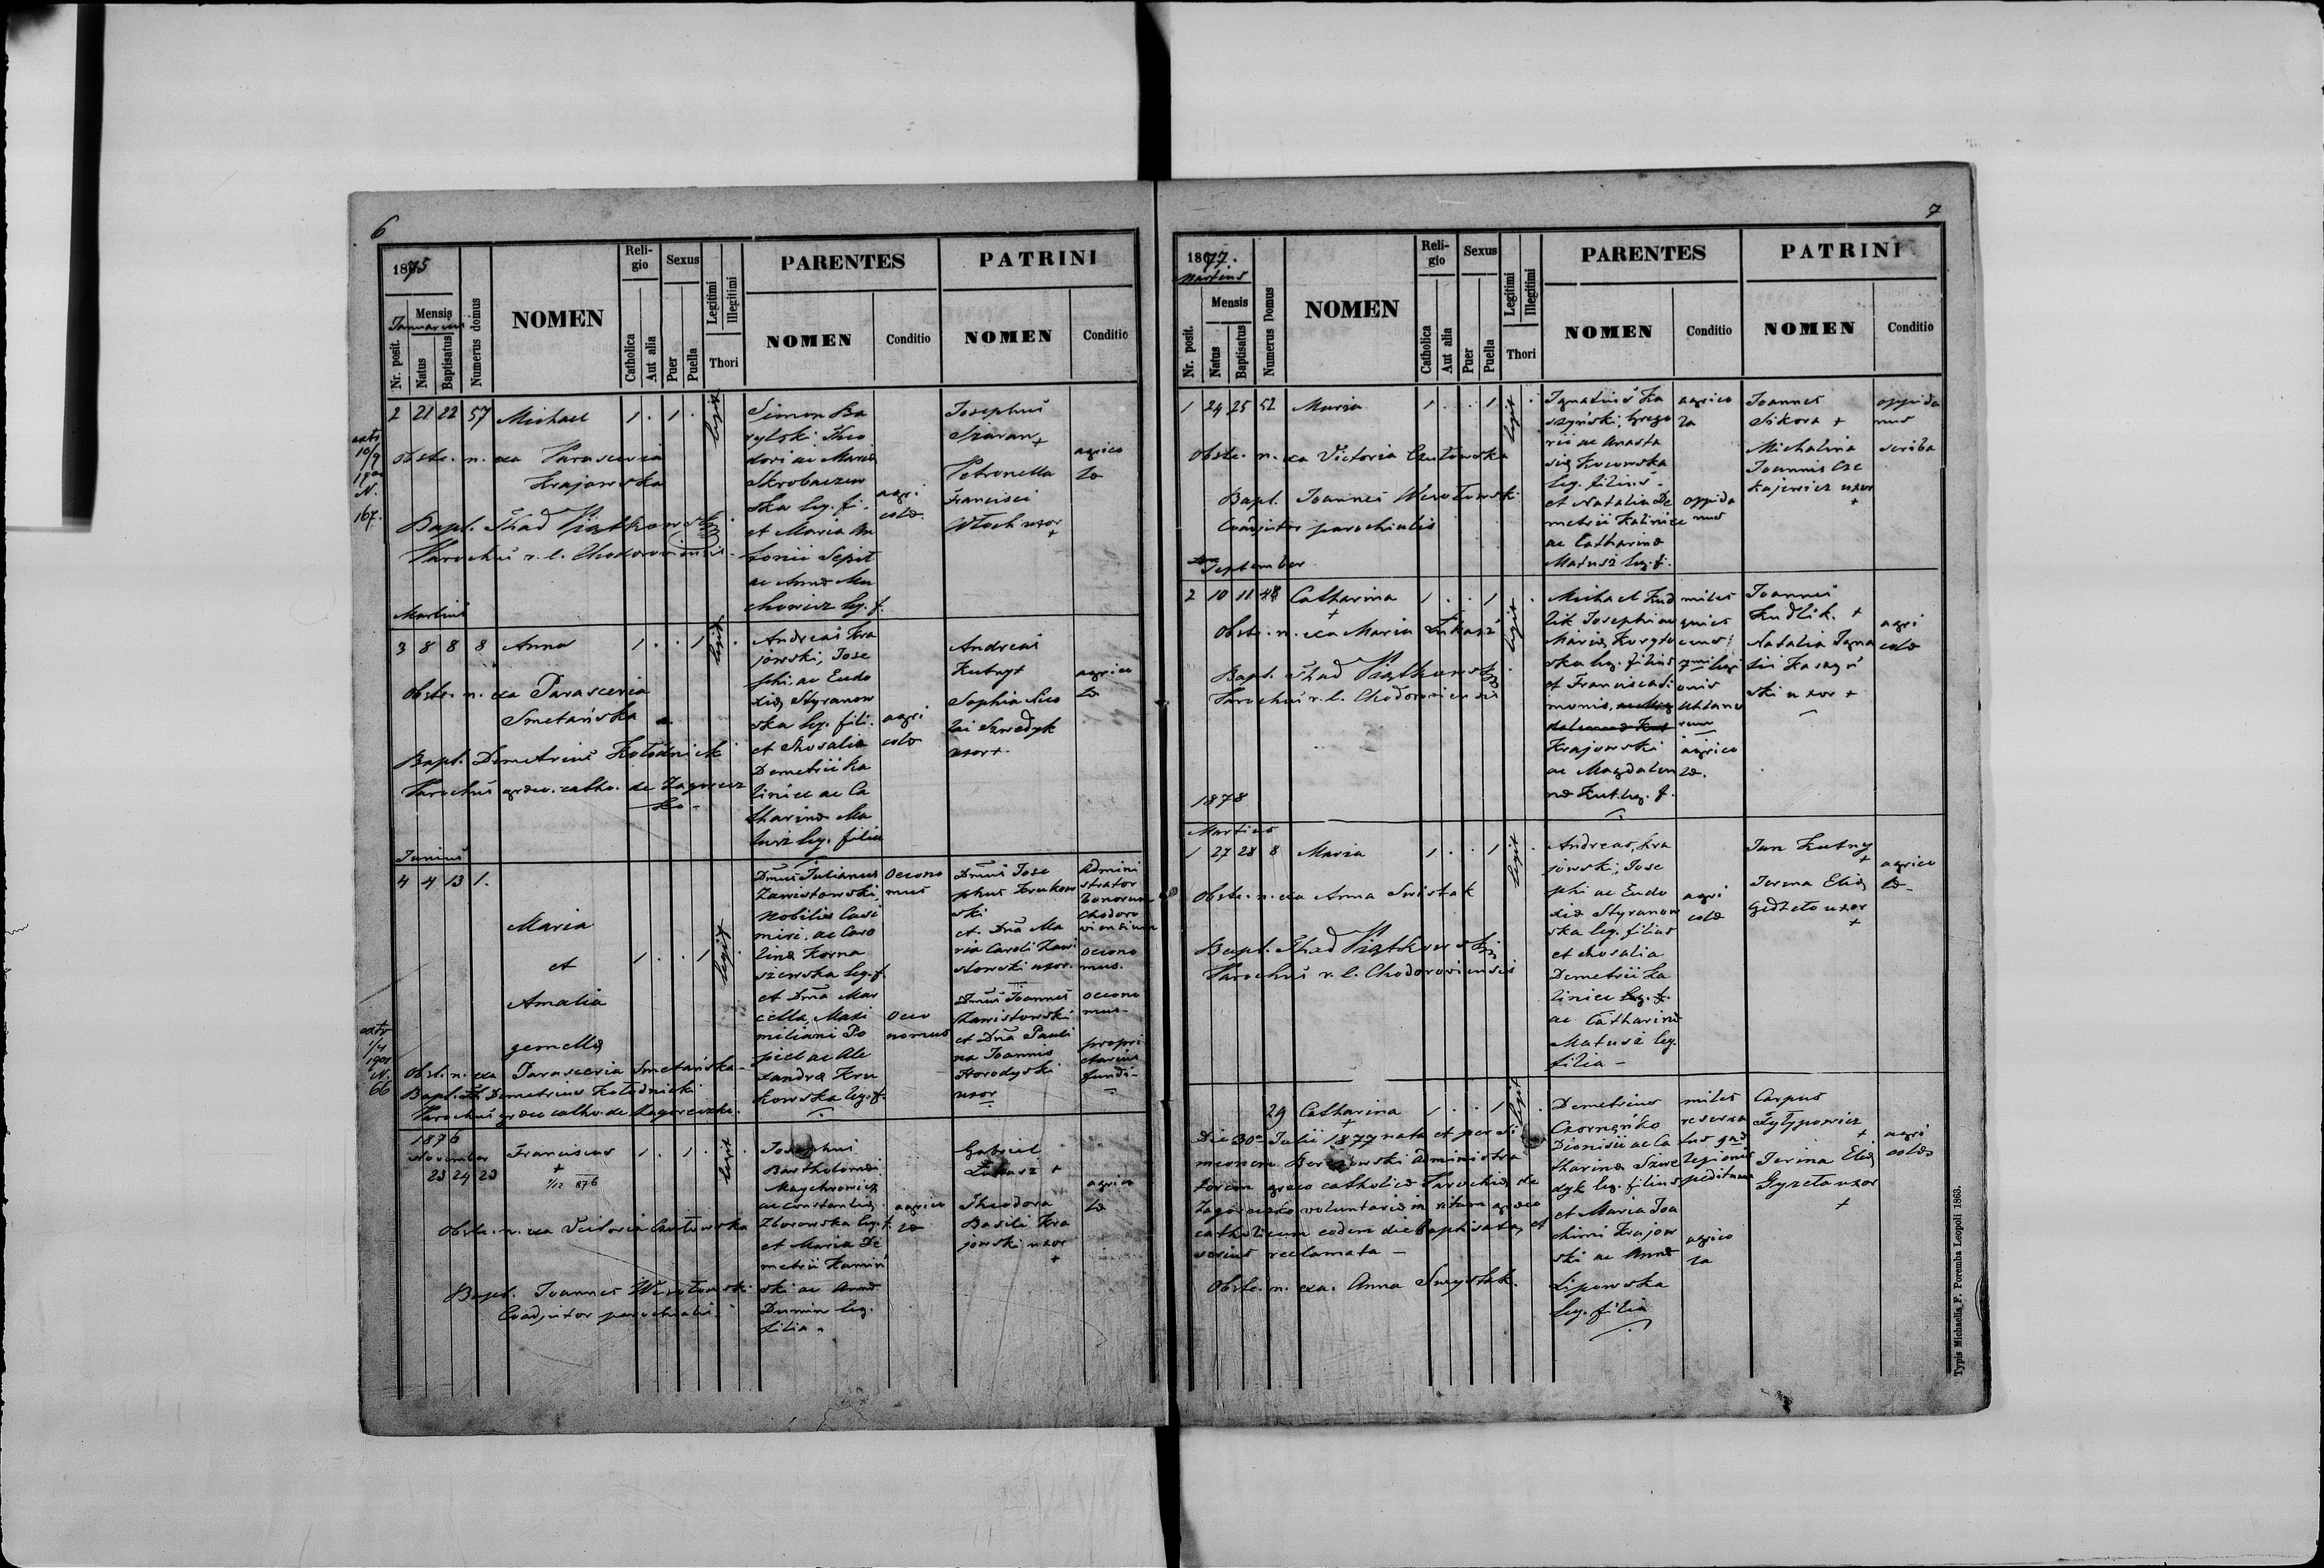 6
1875
Januarius
Mensis
Nr. posit.
Natus
Baptisatus
Numerus domus
NOMEN
Religio
Catholica
Aut alia
Sexus
Puer
Puella
Legitimi
Illegitimi
Thori
PARENTES
NOMEN
Conditio
PATRINI
NOMEN
Conditio
extr
10/9
N.
167.
2 21 22 57 Michael 1 . 1 . legit
Obste. n. exa Parascevia
Krajowska
Bapt. Thad Piątkowski
Parochus r. l. Chodoroviensis
Simon Ba
rylski, Theo
dori ac Maria
Skrobaczew
ska leg. f.
et Maria An
tonii Sepit
ac Anna Mu
chowicz leg. f.
agri
cola
Josephus
Szaran +
Petronella
Francisci
Włoch uxor
+
agrico
la
Martius
3 8 8 8 Anna 1 . . 1 legit .
Obste. n. exa Parascevia
Smetańska
Bapt. Demetrius Kołodnicki
Parochus graeco. catho. de Zagorecz
ko -
Andreas Kra
jowski, Jose
phi, ac Eudo
xia Styranow
ska leg. fili.
et Rosalia
Demetrii Ka
linicz ac Ca
tharina Ma
tusz leg. filia
agri
cola
Andreas
Kutny +
Sophia Nico
lai Szwedyk
uxor +.
agrico
la
Junius
4 4 13 1.
Maria
et
Amalia
gemella
1 . . 1 legit .
Obst. n. exa Parascevia Smetańska -
Bapt. Demetrius Kołodnicki
Parochus graeco catho. de Zagoreczko.
extr
1/4
1901
N.
66
Dmus Julianus
Zawistowski,
Nobilis Casi
miri, ac Caro
lina Korna
szewska leg. f.
et Dna Mar
cella, Maxi
miliani Po
piel ac Ale
xandra Kru
kowska leg. f.
Oecono
mus
oeco
nomus
Dmus Jose
phus Krukow
ski
et Dna Ma
ria Caroli Zawi
stowski uxor.
Dmus Joannes
Zawistowski
et Dna Pauli
na Joannis
Horodyski
uxor
Admini
strator
bonorum
Chodoro
viensium
oecono
mus.
oecono
mus -
propri
etarius
fundi -
1876
November
23 24 23 Franciscus 1 . 1 . legit
+
1/12 876
Obste. n. exa Victoria Czułowska
Bapt. Joannes Wesołowski
Coadjutor parochialis.
Josephus
Bartholomaei
Maychrowicz
ac Constantia
Zborowska leg. f.
et Maria De
metrii Kamiń
ski ac Anna
Dumin leg.
filia.
agrico
la
Gabriel
Łukasz +
Theodora
Basili Kra
jowski uxor
+
agrico
la
7
1877.
Martius
Mensis
Nr. posit.
Natus
Baptisatus
Numerus Domus
NOMEN
Religio
Catholica
Aut alia
Sexus
Puer
Puella
Legitimi
Illegitimi
Thori
PARENTES
NOMEN
Conditio
PATRINI
NOMEN
Conditio
1 24 25 52 Maria 1 . . 1 legit .
Obste. n. exa Victoria Czułowska
Bapt. Joannes Wesołowski
Coadjutor parochialis
Ignatius Ka
szyński, Grego
rii ac Anasta
sia Kocowska
leg. filius -
et Natalia De
metrii Kalinicz
ac Catharina
Matusz leg. f.
agrico
la
oppida
nus
Joannes
Sikora +
Michalina
Joannis Cze
kajewicz uxor
+
oppida
nus
scriba
September
2 10 11 48 Catharina 1 . . 1 legit .
+
Obste. n. exa Maria Łukasz
Bapt. Thad Piątkowski
Parochus r. l. Chodoroviensis
Michael Kud
lik Josephi ac
Maria Korytow
ska leg. filius
et Francisca Si
monis,
Krajowski
ac Magdalen
na Kut leg. f.
miles
agrico
la.
Joannes
Kudlik. +
Natalia Igna
tii Kaszyń
ski uxor +
agri
cola
1878
Martius
1 27 28 8 Maria 1 . . 1 legit .
Obste. n. exa Anna Swistak
Bapt. Thad Piątkowski
Parochus r. l. Chodoroviensis
Andreas, Kra
jowski, Jose
phi ac Eudo
xia Styranow
ska leg. filius
et Rosalia
Demetrii Ka
linicz leg. f.
ac Catharina
Matusz leg.
filia -
agri
cola
Jan Kutny
+
Jerina Elia
Gedzeto uxor
+
agrico
la -
29 Catharina 1 . . 1 legit .
+
Die 30a Julii 1877 nata et per Si
meonem Berezowski Administra
torem graeco catholica Parochia de
Zagoreczko voluntarie in ritum graeco
catholicum eodem die baptisata, et
serius reclamata -
Obste. n. exa. Anna Swystak.
Demetrius
Czorneńko
Dionisii ac Ca
tharina Szwe
dyk leg. filius
et Maria Joa
chimi Krajow
ski ac Anna
Lipowska
leg. filia
miles
reserva
legionis
peditum
agrico
la
Carpus
Żytypowicz
+
Jerina Elia
Gyzeta uxor
+
agri
cola
Typis Michaelis F. Poremba Leopoli 1863.